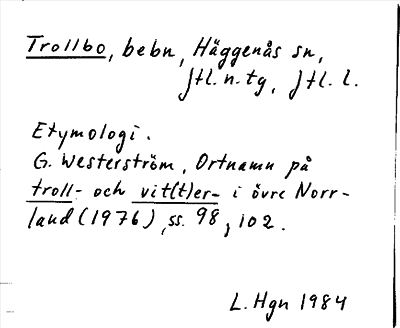 Trollbo, bebn, Häggenås sn,
Jtl. n. tg, Jtl. l.
Etymologi.
G. Westerström, Ortnamn på
troll- och vit(t)er- i övre Norr-
land (1976), ss. 98, 102.
L. Hgn 1984